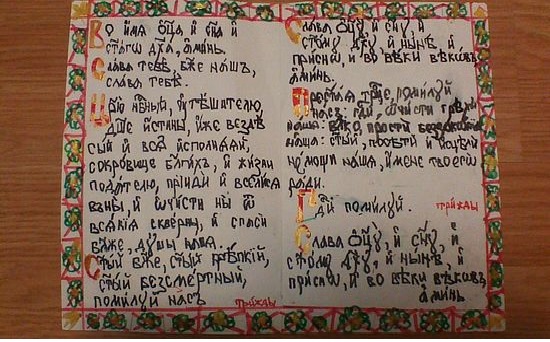 Во имѧ Ѻц҃а, и҆ Сн҃а и҆
ст҃аго дх҃а, а҆минь.
Слава тебѣ, бж҃е нашъ,
слава тебѣ.
Цр҃ю нб҃ный, ᲂу҆тѣшателю,
дш҃е истины, и҆же вездѣ
сый и҆ всѧ исполнѧѧй,
сокровище благихъ, и҆ жизни
подателю, прїиди и҆ вселисѧ
в ны, и҆ ѡ҆чисти ны ѿ
всѧкїѧ скверны, и҆ спаси
бл҃же, душы нашѧ.
Ст҃ый бж҃е, ст҃ый крѣпкїй,
ст҃ый безсмертный,
помилуй насъ трижды
Слава ѻ҆ц҃у, и҆ сн҃у и҆
ст҃ому дх҃у, и҆ нынѣ, и҆
присно, и҆ во вѣки вѣковъ
а҆минь.
Прест҃аѧ трⷪ҇це, помилуй
насъ, гдⷭ҇и, ѡ҆чисти грѣхи
нашѧ: влⷣко, прости беззаконїѧ
нашѧ: ст҃ый, посѣти и҆ исцѣли
немощи нашѧ, и҆мене твоегѡ
ради.
Гдⷭ҇и помилуй. трижды
Слава ѻ҆ц҃у, и҆ сн҃у, и҆
ст҃ому дх҃у, и҆ нынѣ, и҆
присно, и҆ во вѣки вѣковъ
а҆минь